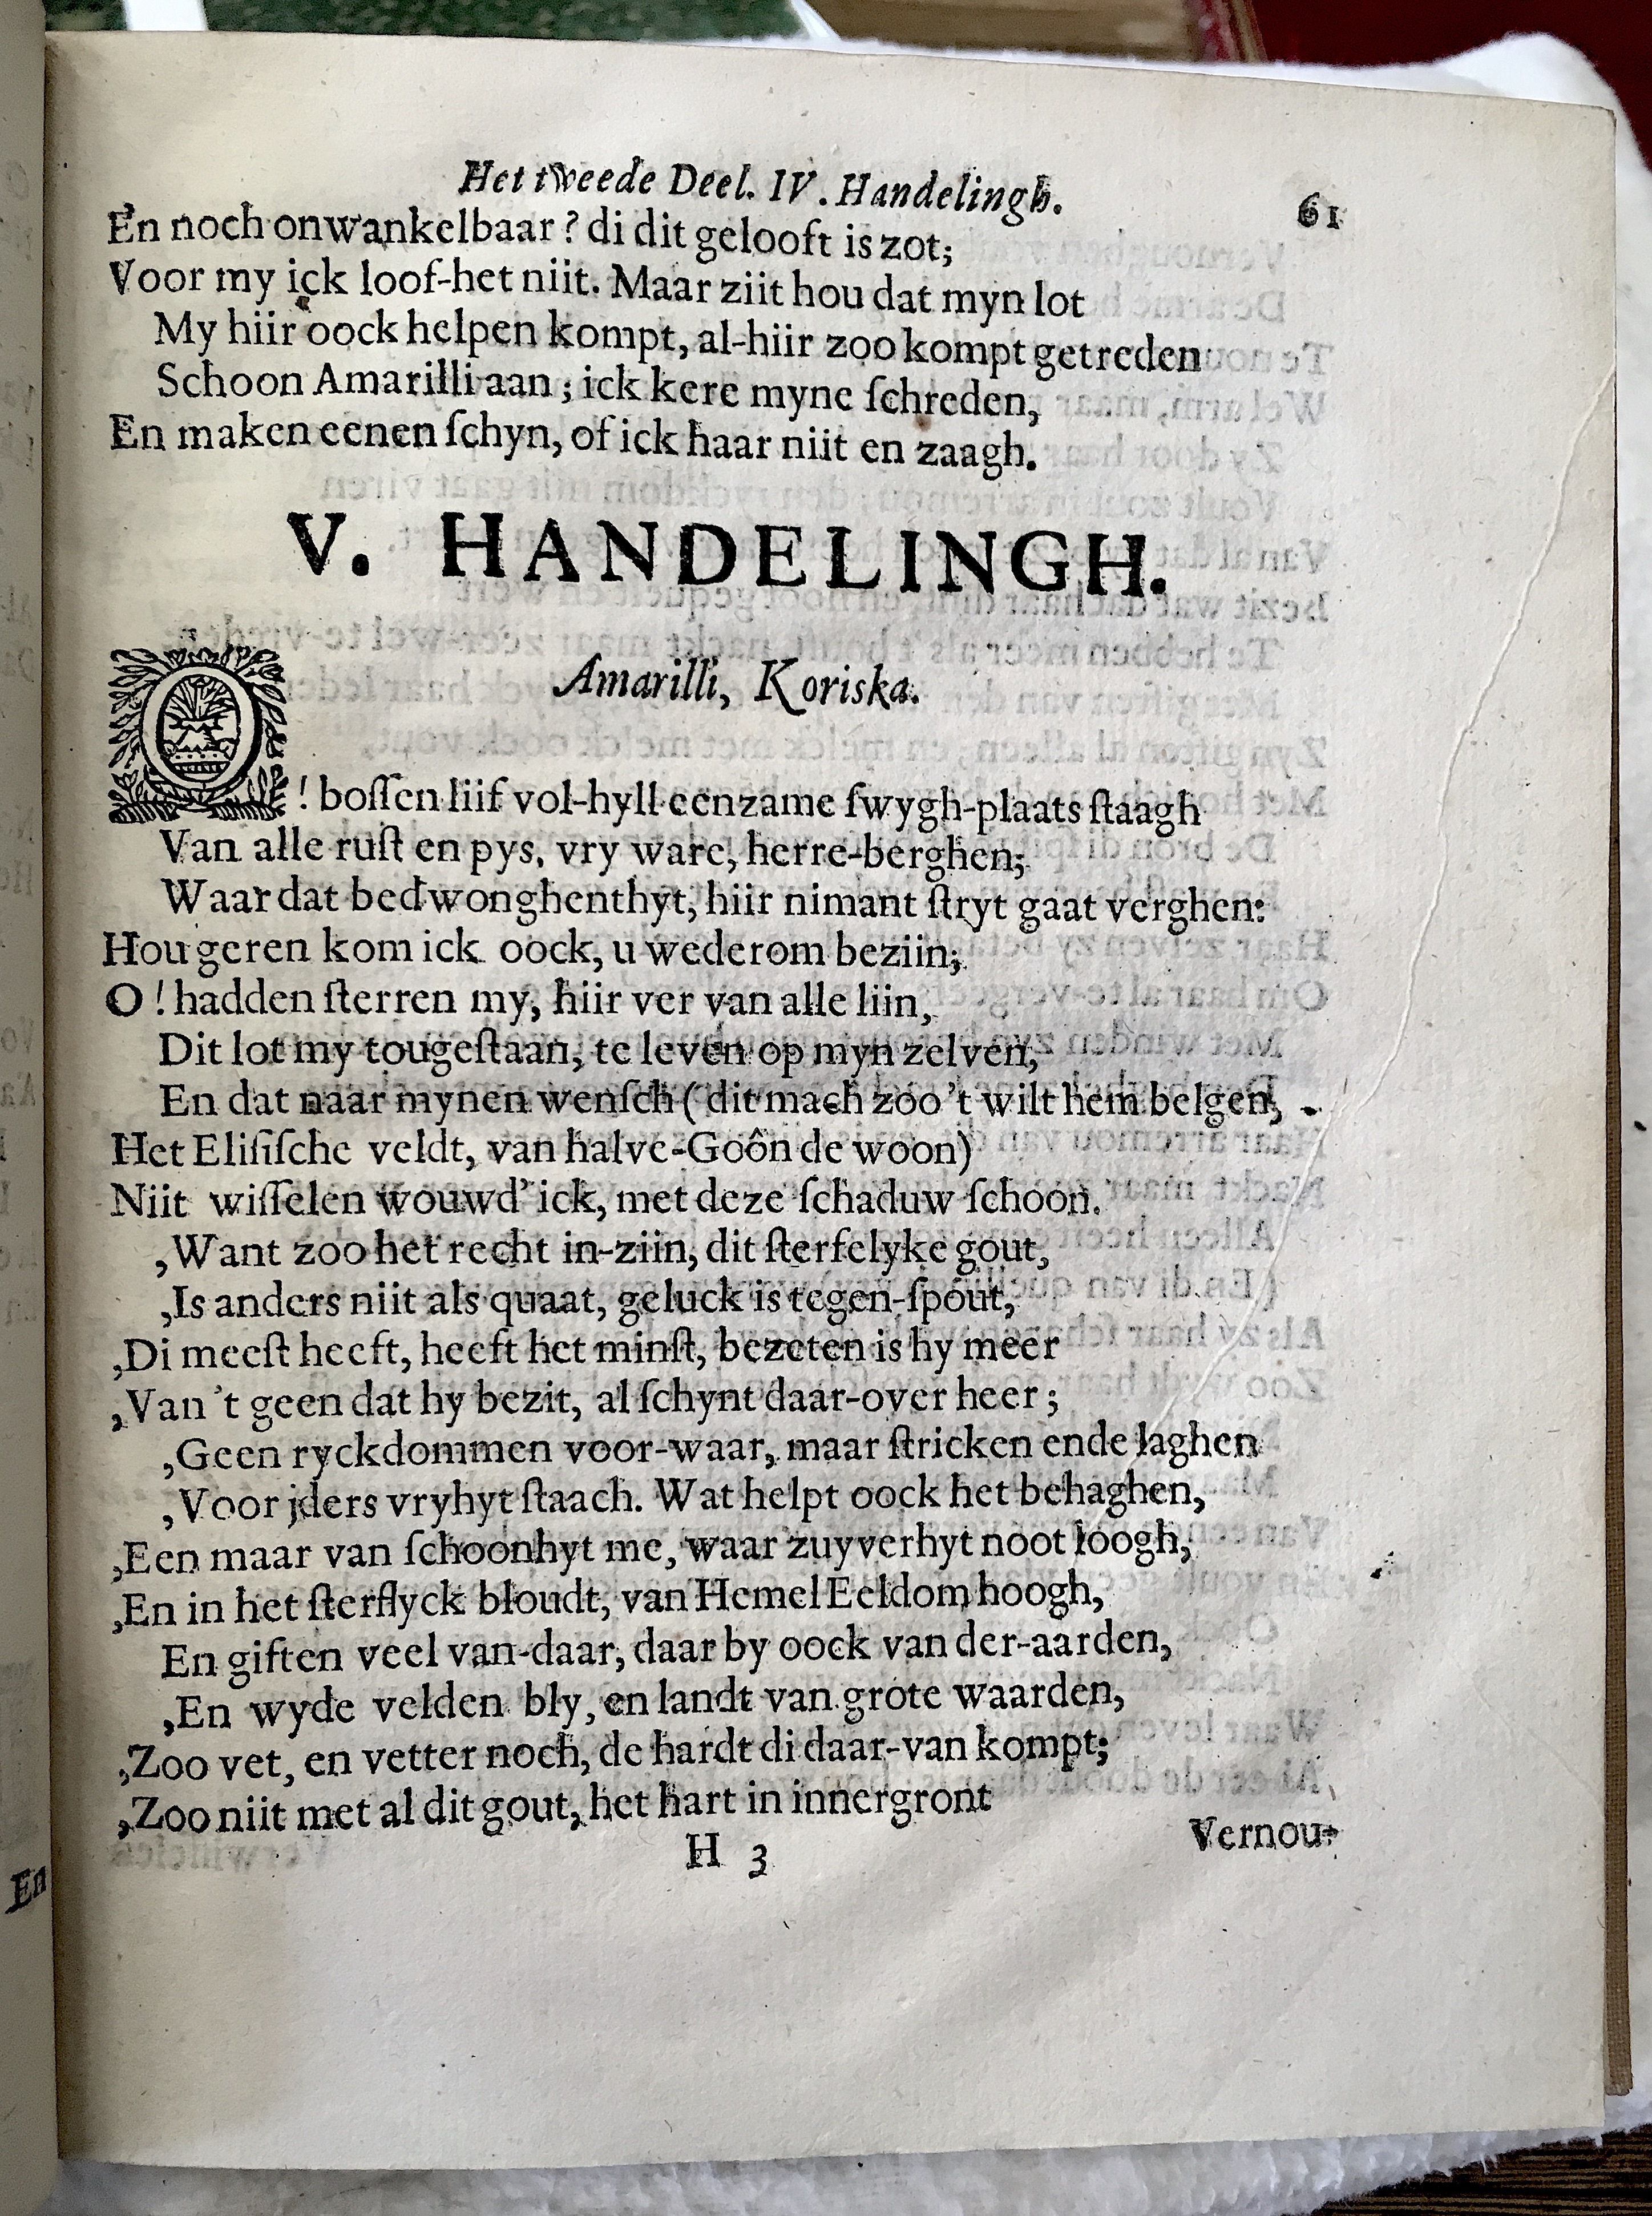 Het tweede Deel. IV. Handelingh. 61
En noch onwankelbaar? di dit gelooft is zot;
Voor my ick loof-het niit. Maar ziit hou dat myn lot
My hiir oock helpen kompt, al-hiir zoo kompt getreden
Schoon Amarilli aan; ick kere myne ſchreden,
En maken eenen ſchyn, of ick haar niit en zaagh.
V. HANDELINGH.
Amarilli, Koriska.
O! boſſen liif vol-hyll eenzame ſwygh-plaats ſtaagh
Van alle ruſt en pys, vry ware, herre-berghen;
Waar dat bedwonghenthyt, hiir nimant ſtryt gaat verghen:
Hou geren kom ick oock, u wederom beziin;
O! hadden ſterren my, hiir ver van alle liin,
Dit lot my tougeſtaan, te leven op myn zelven,
En dat naar mynen wenſch (dit mach zoo't wilt hem belgen,
Het Eliſiſche veldt, van halve-Goôn de woon)
Niit wiſſelen wouwd' ick, met deze ſchaduw ſchoon.
,Want zoo het recht in-ziin, dit ſterfelyke gout,
,Is anders niit als quaat, geluck is tegen-ſpout,
,Di meeſt heeft, heeft het minſt, bezeten is hy meer
,Van 't geen dat hy bezit, al ſchynt daar-over heer;
,Geen ryckdommen voor-waar, maar ſtricken ende laghen
,Voor jders vryhyt ſtaach. Wat helpt oock het behaghen,
,Een maar van ſchoonhyt me, waar zuyverhyt noot loogh,
,En in het ſterflyck bloudt, van Hemel Eeldom hoogh,
En giften veel van-daar, daar by oock van der-aarden,
,En wyde velden bly, en landt van grote waarden,
,Zoo vet, en vetter noch, de hardt di daar-van kompt;
,Zoo niit met al dit gout, het hart in innergront
H 3 Vernou-
En